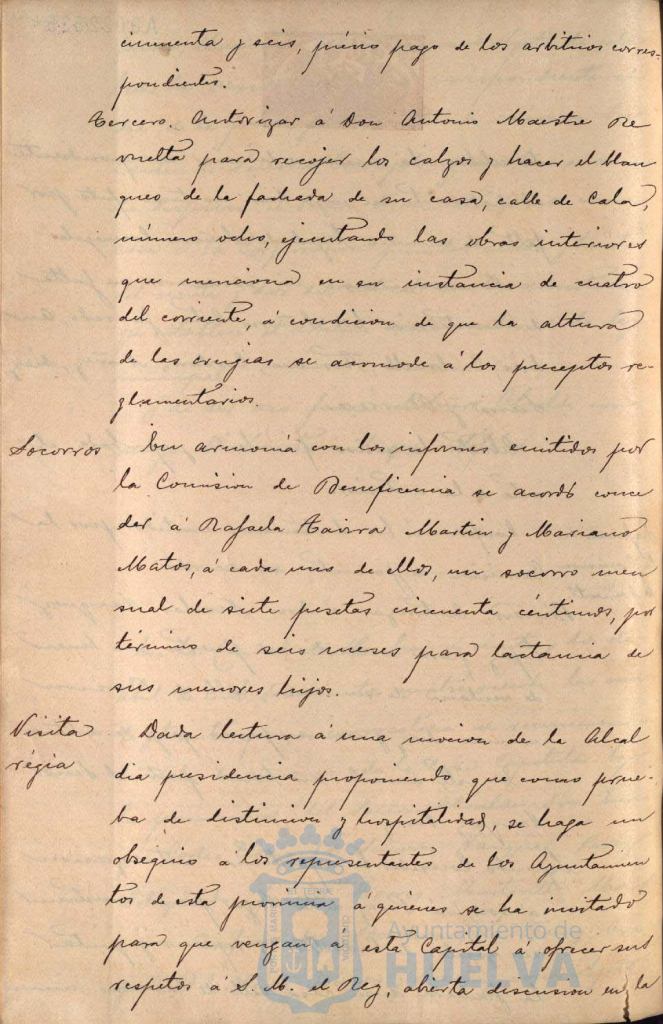 cincuenta y seis, prévio pago de los arbitrios corres-
pondientes.
Tercero. Autorizar á Don Antonio Maestre Re
vuelta para recojer los calzos y hacer el blan
queo de la fachada de su casa, calle de Cala,
número ocho, ejecutando las obras interiores
que menciona en su instancia de cuatro
del corriente, á condicion de que la altura
de las crugias se acomode á los preceptos re-
glamentarios.
Socorros En armonía con los informes emitidos por
la Comision de Beneficencia se acordó conce
der á Rafaela Tavirra Martin y Mariano
Matos, á cada uno de ellos, un socorro men
sual de siete pesetas cincuenta céntimos, por
término de seis meses para lactancia de
sus menores hijos.
Visita Dada lectura á una mocion de la Alcal
régia dia presidencia proponiendo que como prue-
ba de distincion y hospitalidad, se haga un
obsequio á los representantes de los Ayuntamien
tos de esta provincia á quienes se ha invitado
para que vengan a esta Capital á ofrecer sus
respetos á S. M. el Rey, abierta discusion en la
Ayuntamiento de
HUELVA